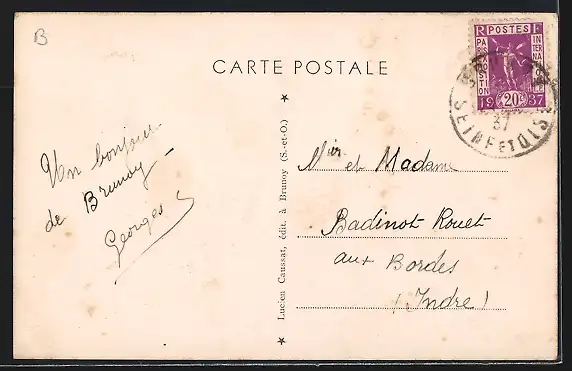 B
CARTE POSTALE
RF
POSTES
EXPOSITION
INTERNA
PARIS
20c
1937
37
SEINE ET OISE
Un bonjour
de Brunoy -
Georges
Lucien Caussat, édit. à Brunoy (S.-et-O.)
Mr et Madame
Badinot-Rouet
aux Bordes
(Indre)